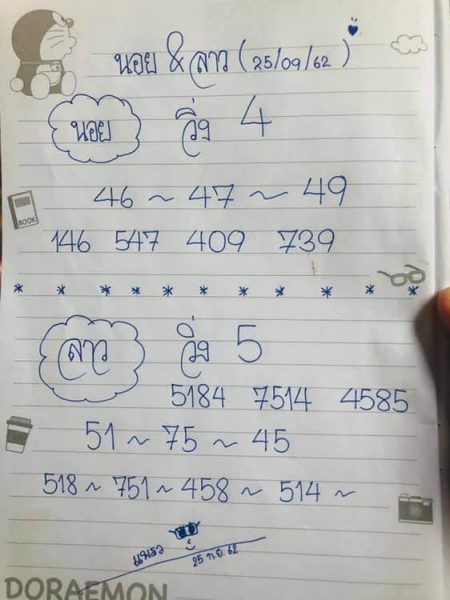 นอย & ลาว (25/09/62)
นอย วิ่ง 4
46 ~ 47 ~ 49
BOOK
146 547 409 739
* * * * * * * * * * *
ลาว วิ่ง 5
5184 7514 4585
51 ~ 75 ~ 45
518 ~ 751 ~ 458 ~ 514 ~
25 ก.ย. 62
DORAEMON